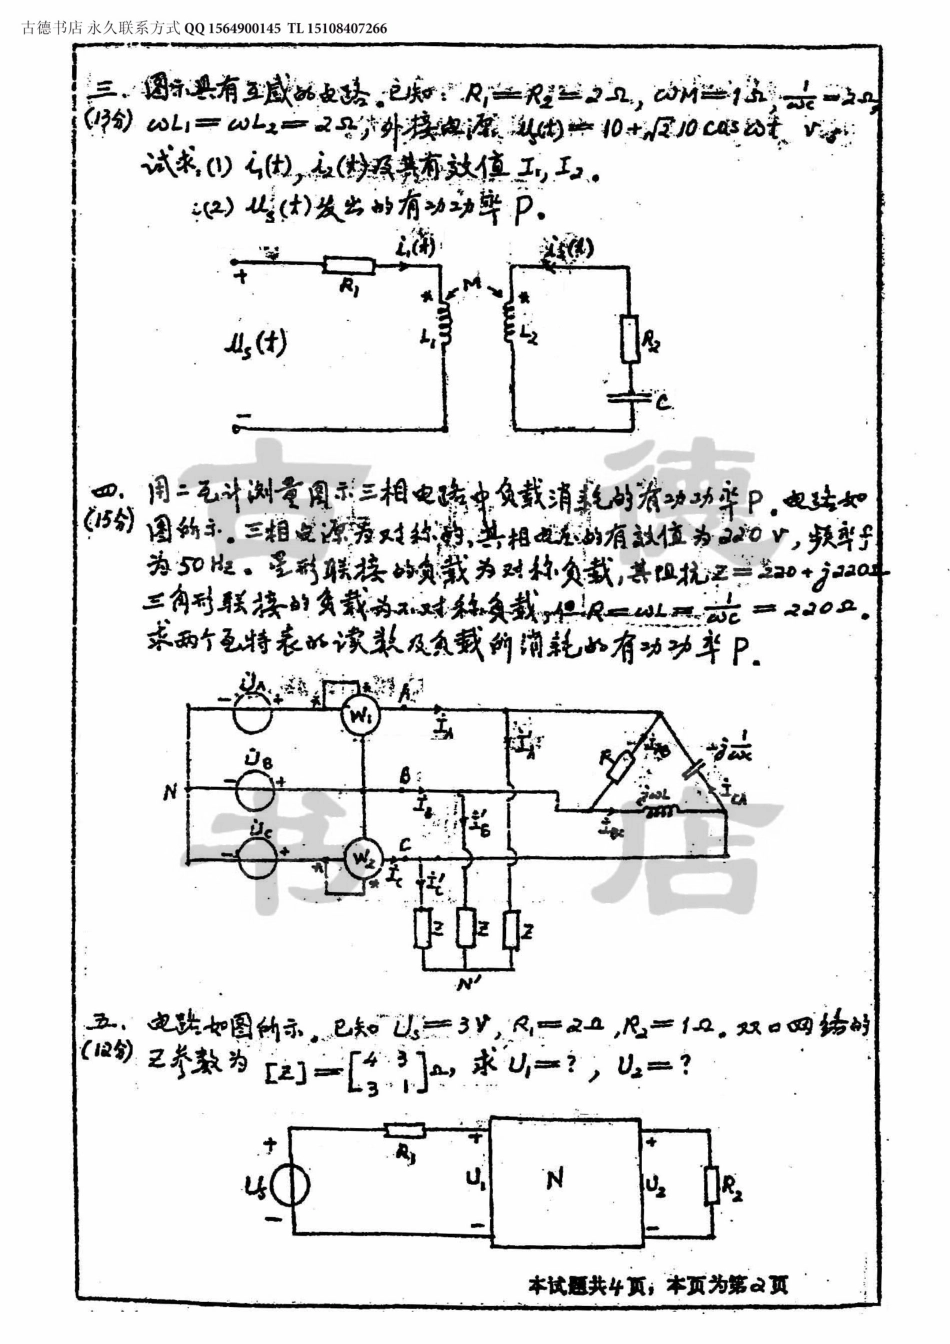 古德书店 永久联系方式 QQ 1564900145 TL 15108407266
三、图示具有互感的电路。已知：R₁=R₂=2Ω, ωM=1Ω, 1/ωc=2Ω,
(13分) ωL₁=ωL₂=2Ω, 外接电源 u_s(t)=10+√2 10 cosωt V。
试求：(1) i₁(t), i₂(t)及其有效值 I₁, I₂。
(2) u_s(t)发出的有功功率 P。
i₁(t) i₂(t)
+ R₁ * M *
u_s(t) L₁ L₂ R₂
- C
四、用二瓦计测量图示三相电路中负载消耗的有功功率P。电路如
(15分) 图所示。三相电源为对称的，其相电压的有效值为220V，频率f
为50Hz。星形联接的负载为对称负载，其阻抗Z=220+j220Ω
三角形联接的负载为不对称负载，但R=ωL=1/ωc=220Ω。
求两个瓦特表的读数及负载所消耗的有功功率P。
- U̇_A + * * W₁ A İ_A İ'_A
R İ_AB 1/jωc İ_CA
N - U̇_B + B İ_B İ'_B İ_BC jωL
- U̇_C + * W₂ * C İ_C İ'_C
Z Z Z
N'
五、电路如图所示。已知 U_s=3V, R₁=2Ω, R₂=1Ω。双口网络的
(12分) Z参数为 [Z]=[4 3; 3 1]Ω, 求 U₁=?, U₂=?
+ R₁ + +
U_s U₁ N U₂ R₂
- - -
本试题共4页；本页为第2页
古德
书店